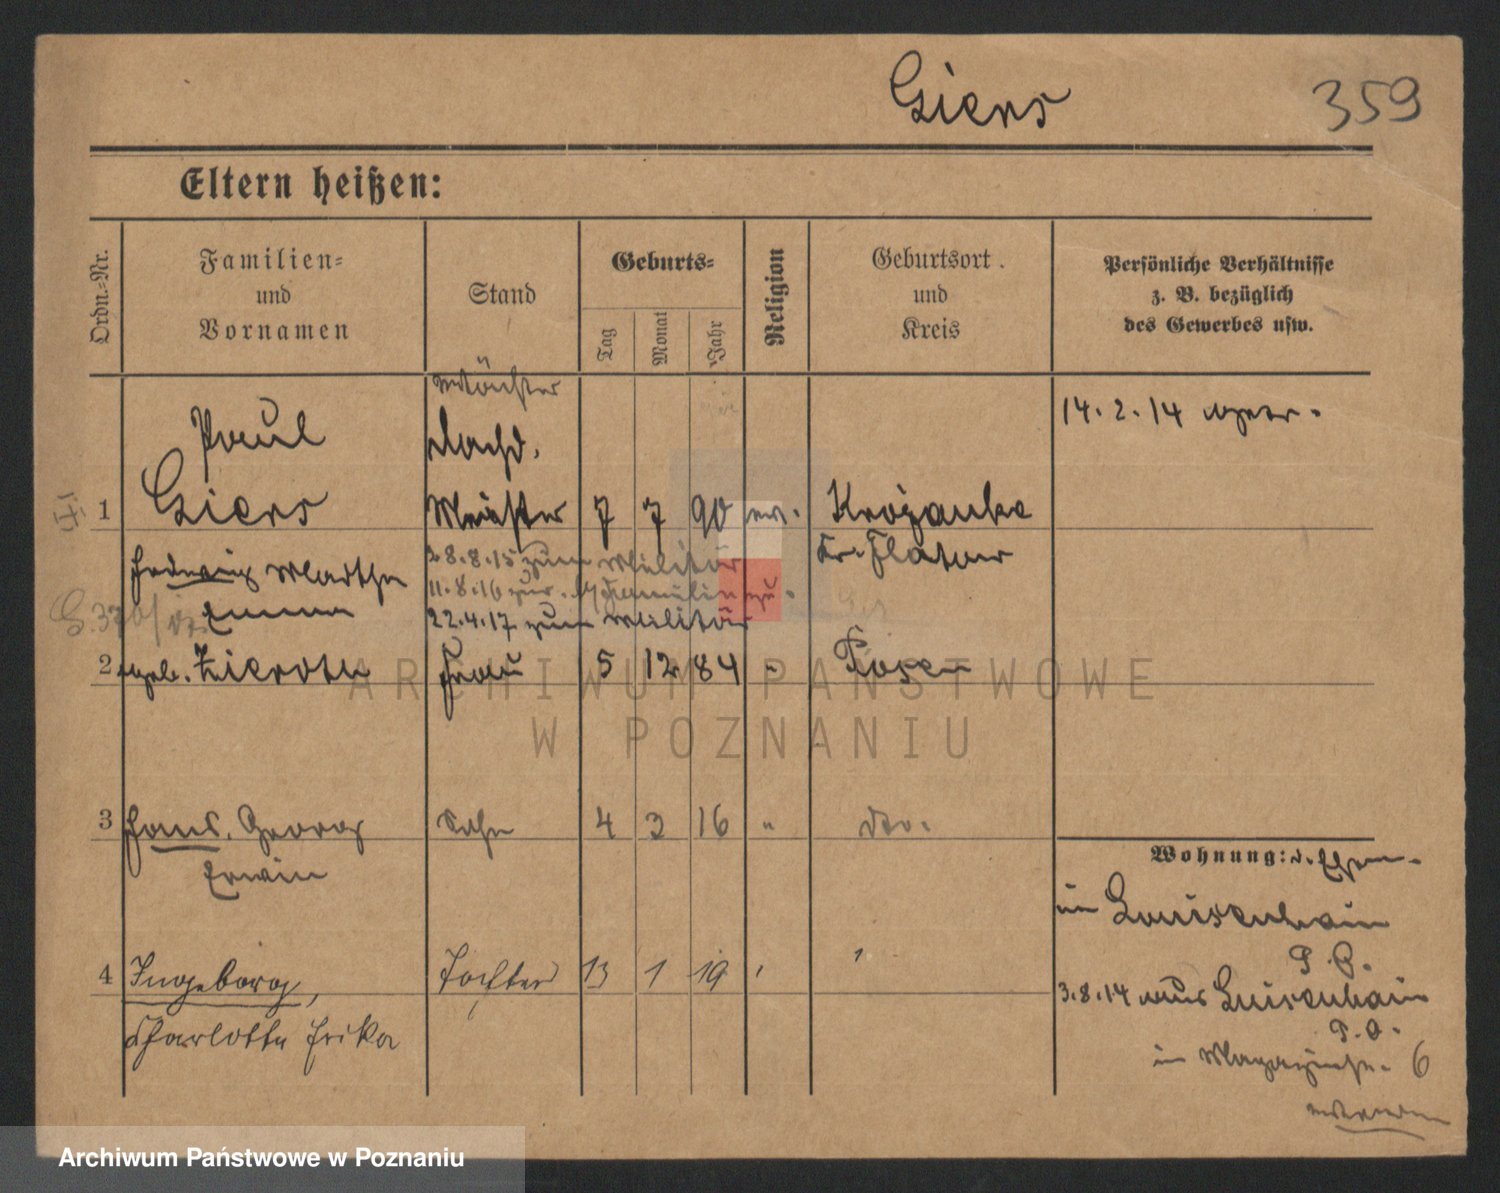 Giers
359
Eltern heißen:
Ordn.-Nr.
Familien-
und
Vornamen
Stand
Geburts-
Tag
Monat
Jahr
Religion
Geburtsort.
und
Kreis
Persönliche Verhältnisse
z. B. bezüglich
des Gewerbes usw.
Wächter
14.2.14
Paul
1 Giers Meister 7 7 90 ev. Krojanke
Kr. Flatow
Hedwig Martha
3.8.15 zum Militär
11.8.16 zur Familie zu.
Emma
22.4.17 zum Militär
2 geb. Zieroth Frau 5 12 84 " Posen
3 Hans, Georg Sohn 4 3 16 " do.
Erwin
Wohnung:
in Louisenhain
P. O.
4 Ingeborg, Tochter 13 1 19 " "
3.8.14 aus Luisenhain
P. O.
Charlotte Erika
in Magazinstr. 6
ARCHIWUM PAŃSTWOWE
W POZNANIU
Archiwum Państwowe w Poznaniu